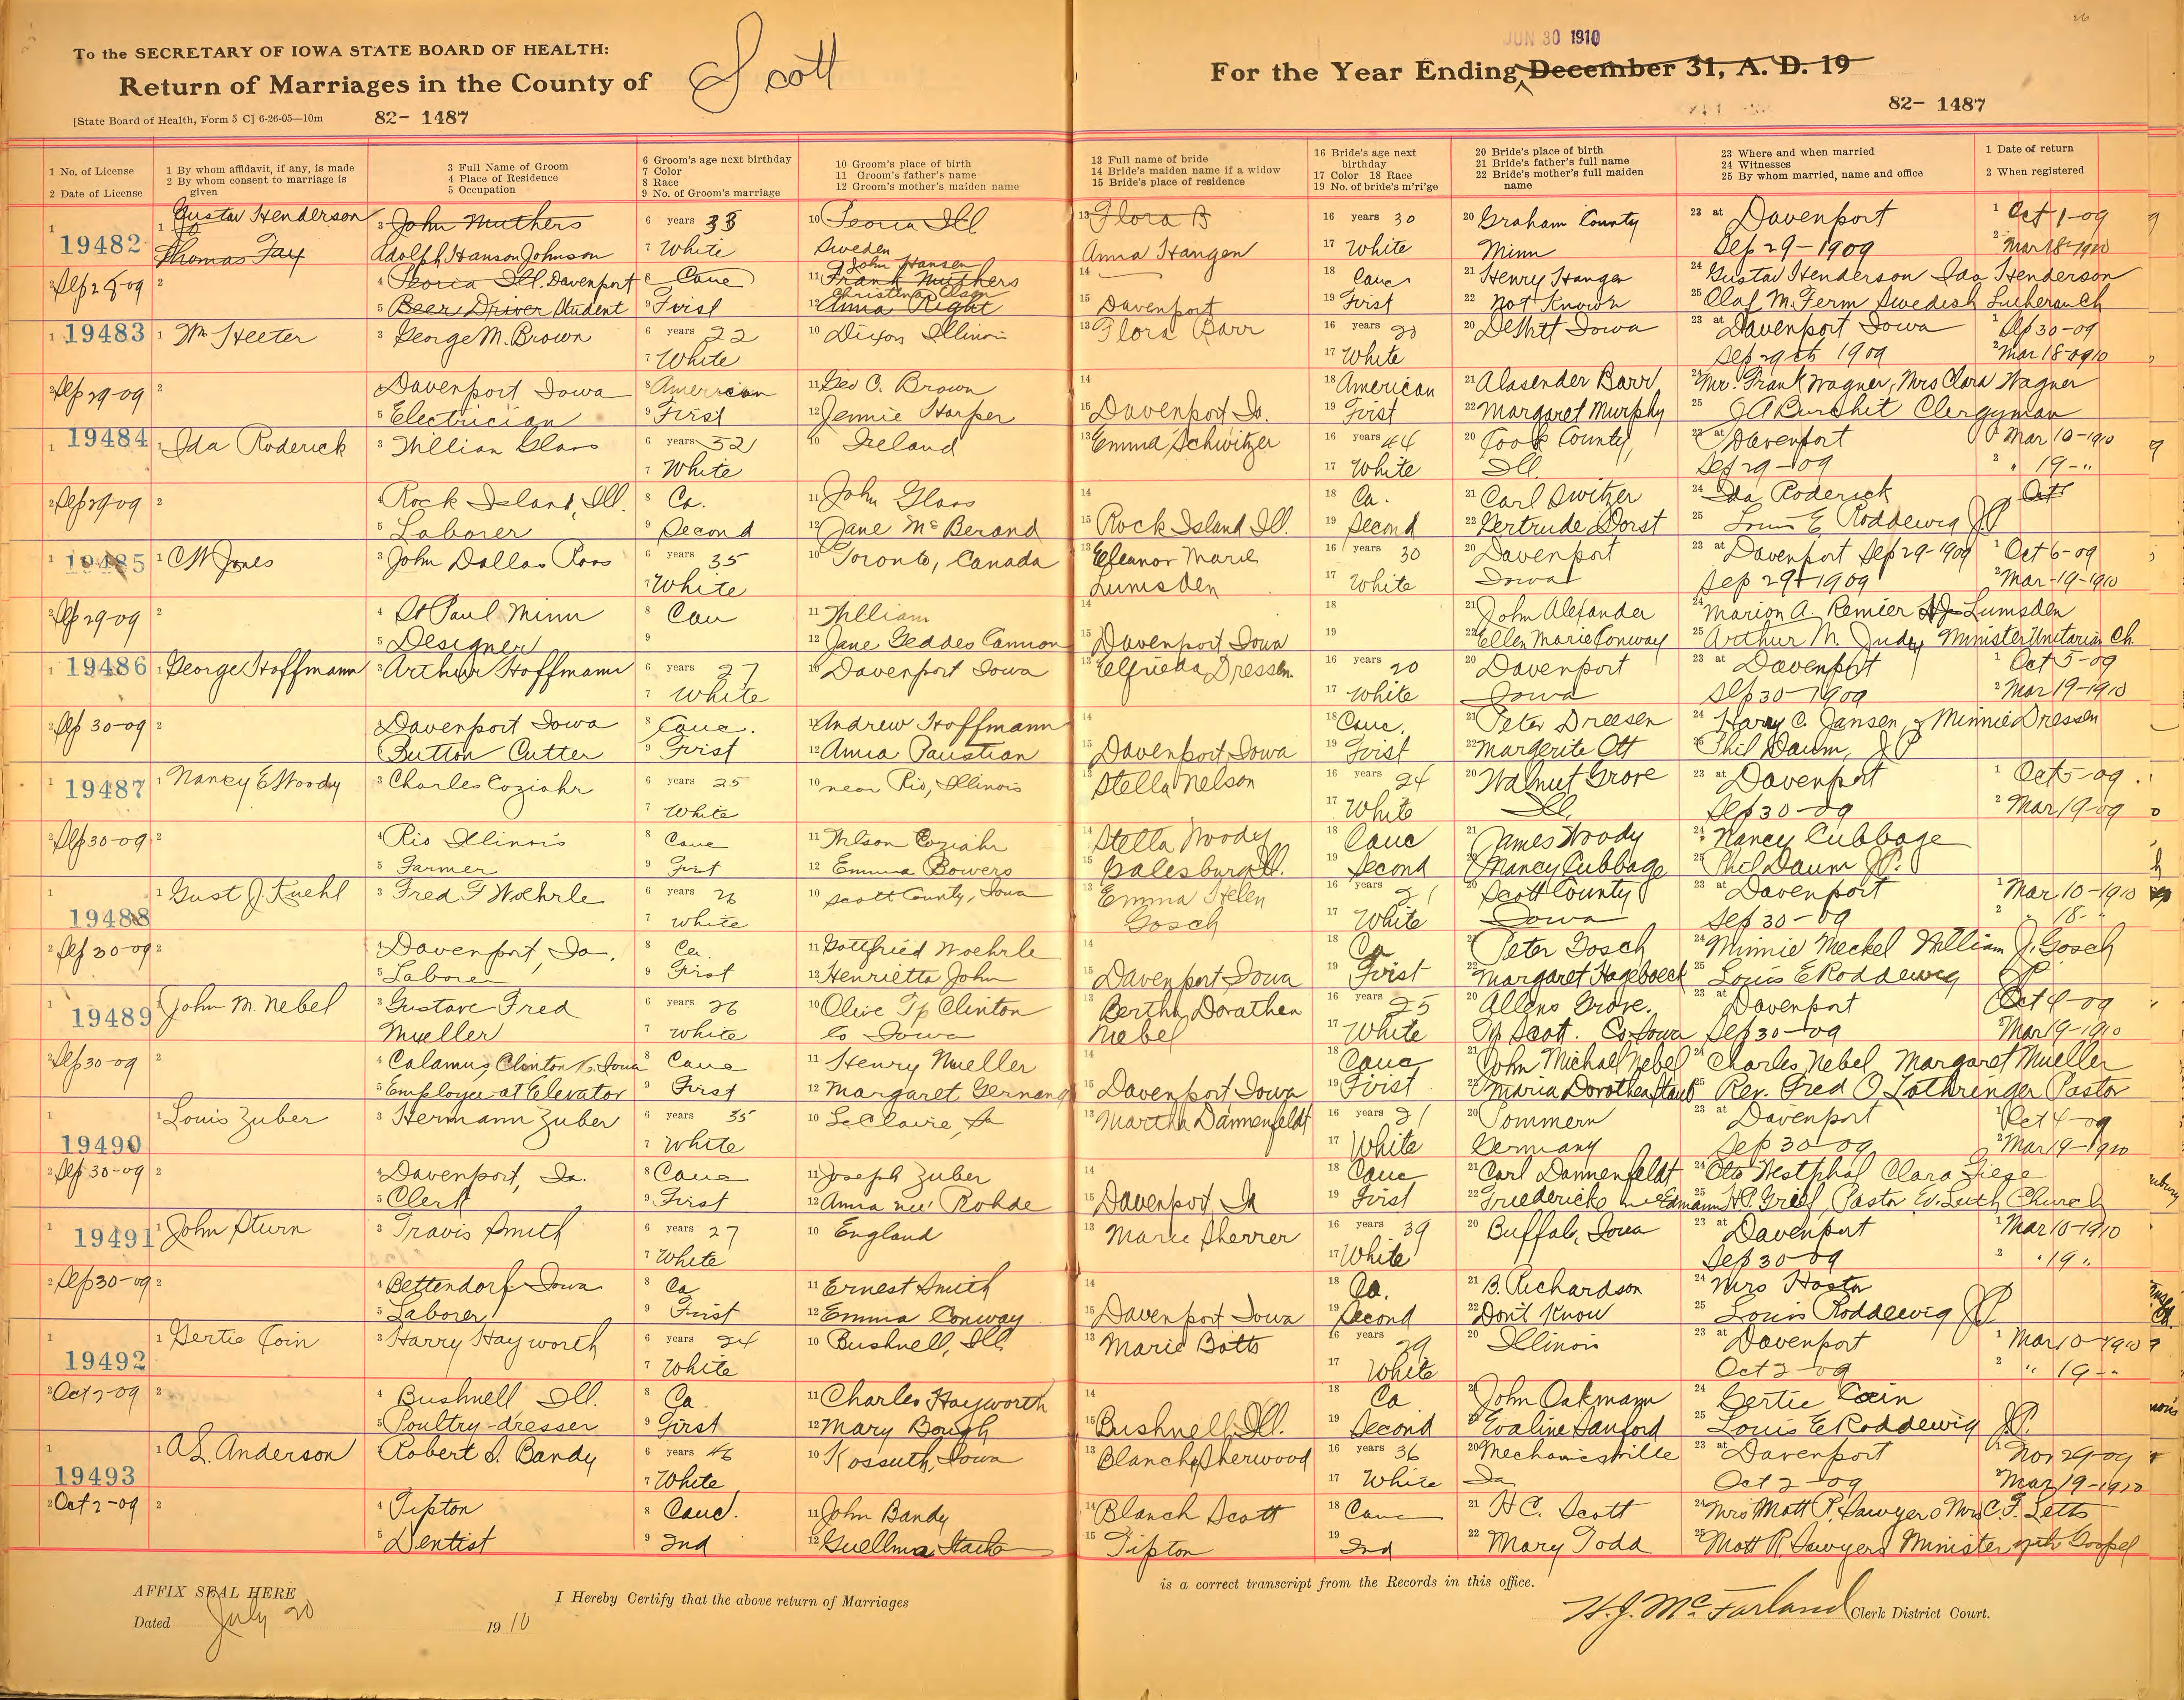 To the SECRETARY OF IOWA STATE BOARD OF HEALTH:
Return of Marriages in the County of Scott
[State Board of Health, Form 5 C] 6-26-05—10m 82- 1487
JUN 30 1910
For the Year Ending December 31, A. D. 19
82- 1487
1 No. of License
2 Date of License
1 By whom affidavit, if any, is made
2 By whom consent to marriage is given
3 Full Name of Groom
4 Place of Residence
5 Occupation
6 Groom's age next birthday
7 Color
8 Race
9 No. of Groom's marriage
10 Groom's place of birth
11 Groom's father's name
12 Groom's mother's maiden name
13 Full name of bride
14 Bride's maiden name if a widow
15 Bride's place of residence
16 Bride's age next birthday
17 Color 18 Race
19 No. of bride's m'rl'ge
20 Bride's place of birth
21 Bride's father's full name
22 Bride's mother's full maiden name
23 Where and when married
24 Witnesses
25 By whom married, name and office
1 Date of return
2 When registered
1 19482
2 Sep 28-09
1 Gustav Henderson
Thomas Fay
2
3 John Muthers
Adolph Hanson Johnson
4 Peoria Ill. Davenport
5 Beer Driver Student
6 years 38
7 White
8 Cauc
9 First
10 Peoria Ill
Sweden
John Hansen
11 Frank Muthers
Christina Olson
12 Anna Right
13 Flora B
Anna Hangen
14
15 Davenport
16 years 30
17 White
18 Cauc
19 First
20 Graham County
Minn
21 Henry Hanger
22 Not Known
23 at Davenport
Sep 29-1909
24 Gustav Henderson Ida Henderson
25 Olaf M. Ferm Swedish Lutheran Ch
1 Oct 1-09
2 Mar 18-1910
1 19483
2 Sep 29-09
1 Wm Heeter
2
3 George M. Brown
Davenport Iowa
5 Electrician
6 years 22
7 White
8 American
9 First
10 Dixon Illinois
11 Geo O. Brown
12 Jennie Harper
13 Flora Barr
14
15 Davenport Io.
16 years 20
17 White
18 American
19 First
20 DeWitt Iowa
21 Alasender Barr
22 Margaret Murphy
23 at Davenport Iowa
Sep 29th 1909
24 Mr. Frank Wagner, Mrs Clara Wagner
25 J A Burchit Clergyman
1 Sep 30-09
2 Mar 18-0910
1 19484
2 Sep 29-09
1 Ida Roderick
2
3 Willian Glass
4 Rock Island, Ill.
5 Laborer
6 years 52
7 White
8 Ca.
9 Second
10 Ireland
11 John Glass
12 Jane Mc Berand
13 Emma Schwitzer
14
15 Rock Island Ill.
16 years 44
17 White
18 Ca.
19 Second
20 Cook County,
Ill.
21 Carl Switzer
22 Gertrude Dorst
23 at Davenport
Sep 29-09
24 Ida Roderick
25 Louis E Roddewig JP
1 Mar 10-1910
2 " 19-"
Oct
1 19485
2 Sep 29-09
1 C W Jones
2
3 John Dallas Ross
4 St Paul Minn
5 Designer
6 years 35
7 White
8 Cau
9
10 Toronto, Canada
11 William
12 Jane Geddes Cannon
13 Eleanor Marie
Lumsden
14
15 Davenport Iowa
16 years 30
17 White
18
19
20 Davenport
Iowa
21 John Alexander
22 Ellen Marie Conway
23 at Davenport Sep 29-1909
Sep 29-1909
24 Marion A. Remier Lumsden
25 Arthur M. Judy Minister Unitarian Ch.
1 Oct 6-09
2 Mar-19-1910
1 19486
2 Sep 30-09
1 George Hoffmann
2
3 Arthur Hoffmann
Davenport Iowa
Button Cutter
6 years 27
7 White
8 Cauc.
9 First
10 Davenport Iowa
11 Andrew Hoffmann
12 Anna Paustian
13 Elfrieda Dressen
14
15 Davenport Iowa
16 years 20
17 White
18 Cauc.
19 First
20 Davenport
Iowa
21 Peter Dreesen
22 Margerite Ott
23 at Davenport
Sep 30-1909
24 Harry C. Jansen, & Minnie Dressen
25 Phil Daum, JP
1 Oct 5-09
2 Mar 19-1910
1 19487
2 Sep 30-09
1 Nancy E Woody
2
3 Charles Coziahr
4 Rio Illinois
5 Farmer
6 years 25
7 White
8 Cauc
9 First
10 near Rio, Illinois
11 Wilson Coziahr
12 Emma Bowers
13 Stella Nelson
14 Stella Woody
15 Galesburg Ill.
16 years 24
17 White
18 Cauc
19 Second
20 Walnut Grove
Ill.
21 James Woody
22 Nancy Cubbage
23 at Davenport
Sep 30-09
24 Nancy Cubbage
25 Phil Daum J.P.
1 Oct 5-09
2 Mar 19-09
1 19488
2 Sep 30-09
1 Gust J. Kuehl
2
3 Fred G Woehrle
4 Davenport, Ia.
5 Laborer
6 years 26
7 White
8 Ca.
9 First
10 Scott County, Iowa
11 Gottfried Woehrle
12 Henrietta John
13 Emma Helen
Gosch
14
15 Davenport Iowa
16 years 21
17 White
18 Ca
19 First
20 Scott County
Iowa
21 Peter Gosch
22 Margaret Hageboeck
23 at Davenport
Sep 30-09
24 Minnie Meckel William J. Gosch
25 Louis E Roddewig JP
1 Mar 10-1910
2 " 18- "
1 19489
2 Sep 30-09
1 John M. Nebel
2
3 Gustave Fred
Mueller
4 Calamus Clinton Co. Iowa
5 Employee at Elevator
6 years 26
7 White
8 Cauc
9 First
10 Olive Tp Clinton
Co Iowa
11 Henry Mueller
12 Margaret Gernand
13 Bertha Dorathea
Nebel
14
15 Davenport Iowa
16 years 25
17 White
18 Cauc
19 First
20 Allens Grove.
Tp Scott. Co. Iowa
21 John Michael Nebel
22 Maria Dorothea Staub
23 at Davenport
Sep 30-09
24 Charles Nebel Margaret Mueller
25 Rev. Fred O Lothringer Pastor
1 Oct 4-09
2 Mar 19-1910
1 19490
2 Sep 30-09
1 Louis Zuber
2
3 Hermann Zuber
4 Davenport, Ia.
5 Clerk
6 years 35
7 White
8 Cauc
9 First
10 LeClaire, Ia
11 Joseph Zuber
12 Anna nee Rohde
13 Martha Dannenfeldt
14
15 Davenport Ia
16 years 21
17 White
18 Cauc
19 First
20 Pommern
Germany
21 Carl Dannenfeldt
22 Friedericke nee Edmann
23 at Davenport
Sep 30-09
24 Otto Westphal Clara Giese
25 H.P. Greif, Pastor Ev. Luth. Church
1 Oct 4-09
2 Mar 19-1910
1 19491
2 Sep 30-09
1 John Sturn
2
3 Travis Smith
4 Bettendorf Iowa
5 Laborer
6 years 27
7 White
8 Ca
9 First
10 England
11 Ernest Smith
12 Emma Conway
13 Marie Sherrer
14
15 Davenport Iowa
16 years 39
17 White
18 Ca.
19 Second
20 Buffalo, Iowa
21 B. Richardson
22 Don't Know
23 at Davenport
Sep 30-09
24 Mrs Hosta
25 Louis Roddewig JP
1 Mar 10-1910
2 " 19 "
1 19492
2 Oct 2-09
1 Gertie Coin
2
3 Harry Hayworth
4 Bushnell Ill.
5 Poultry-dresser
6 years 24
7 White
8 Ca
9 First
10 Bushnell, Ill
11 Charles Hayworth
12 Mary Bough
13 Marie Botts
14
15 Bushnell, Ill.
16 years 29
17 White
18 Ca
19 Second
20 Illinois
21 John Oakmann
22 Evaline Sanford
23 at Davenport
Oct 2-09
24 Gertie Coin
25 Louis E Roddewig JP.
1 Mar 10-1910
2 " 19--
1 19493
2 Oct 2-09
1 A L Anderson
2
Robert S. Bandy
4 Tipton
5 Dentist
6 years 46
7 White
8 Cauc.
9 2nd
10 Kossuth, Iowa
11 John Bandy
12 Guellma
13 Blanche Sherwood
14 Blanch Scott
15 Tipton
16 years 36
17 White
18 Cauc
19 2nd
20 Mechanicsville
Ia
21 H C. Scott
22 Mary Todd
23 at Davenport
Oct 2-09
24 Mrs Mott R. Sawyer & Mrs C. F. Letts
25 Mott R. Sawyer Minister of the Gospel
1 Nov 29-09
2 Mar 19-1910
AFFIX SEAL HERE
Dated July 20 1910
I Hereby Certify that the above return of Marriages
is a correct transcript from the Records in this office.
H. J. McFarland Clerk District Court.